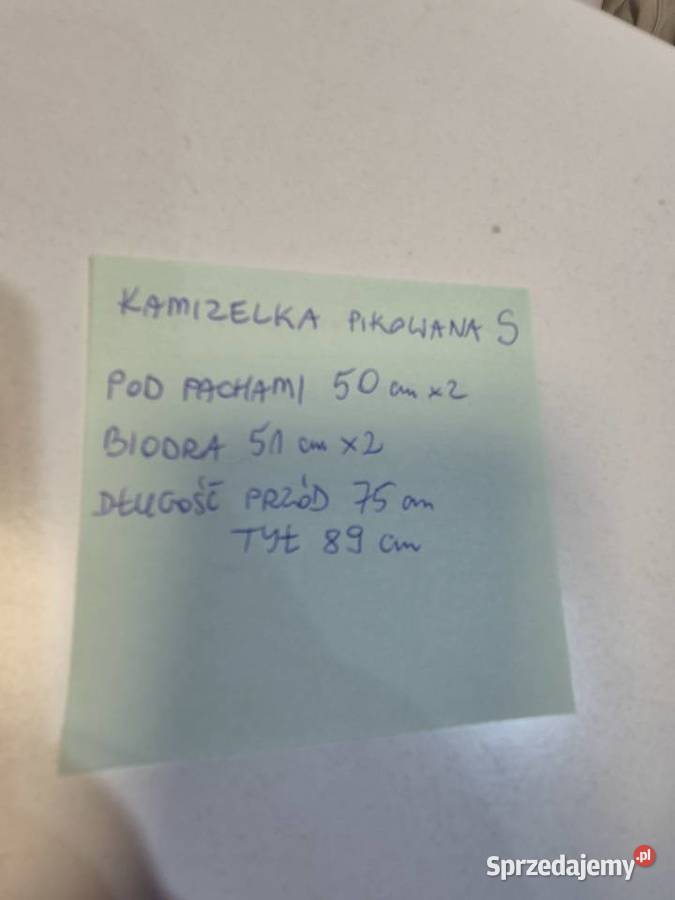 KAMIZELKA PIKOWANA S
POD PACHAMI 50 cm x2
BIODRA 51 cm x2
DŁUGOŚĆ PRZÓD 75 cm
TYŁ 89 cm
Sprzedajemy.pl